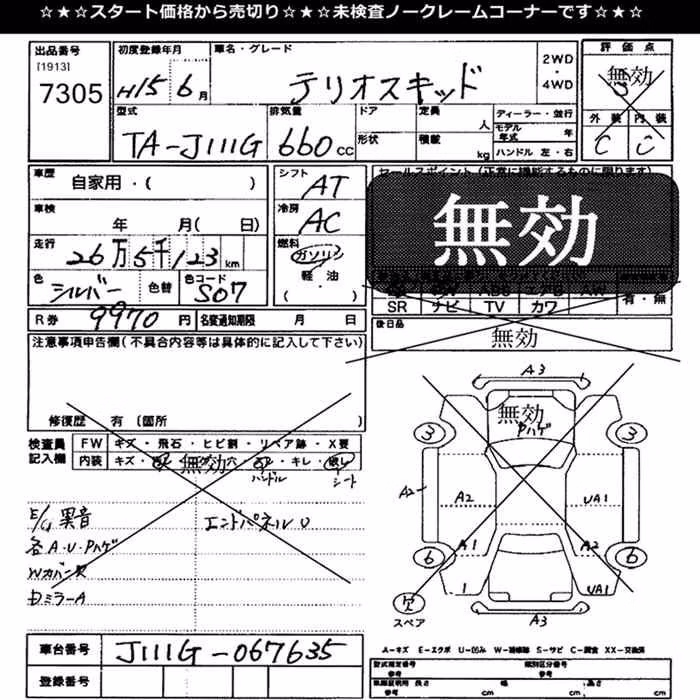 ☆★☆スタート価格から売切り☆★☆未検査ノークレームコーナーです☆★☆
出品番号
[1913]
7305
初度登録年月
H15 6月
車名・グレード
テリオスキッド
2WD
・
4WD
評価点
無効
外装 内装
C C
型式
TA-J111G
排気量
660cc
ドア
形状
定員
人
積載
kg
ディーラー・並行
モデル年式 年
ハンドル 左・右
車歴
自家用・( )
車検
年 月( 日)
走行
26万5千123km
色
シルバー
色替
色コード
S07
シフト
AT
冷房
AC
燃料
ガソリン
軽・油
( )
セールスポイント(正常に機能するものに限ります)
無効
SR ナビ TV カワ
有・無
R券 9970円
名変通知期限 月 日
後日品
無効
注意事項申告欄(不具合内容等は具体的に記入して下さい)
修復歴 有(箇所 )
検査員記入欄
FW キズ・飛石・ヒビ割・リペア跡・X要
内装 キズ・ 無効 穴 ・キレ・
ハンドル シート
E/G異音
各A・U・Pハゲ
Wカバー欠
Dミラー A
エンドパネルU
A3
無効
Pハゲ
3 3
A2 A2 UA1
A1 A2
6 6
1 UA1
欠
スペア
A3
車台番号
J111G-067635
登録番号
A-キズ E-エクボ U-凹み W-補修跡 S-サビ C-腐食 XX-交換済
型式指定番号 類別区分番号
車庫証明用 長さ 幅 高さ
参考 cm 参考 cm 参考 cm